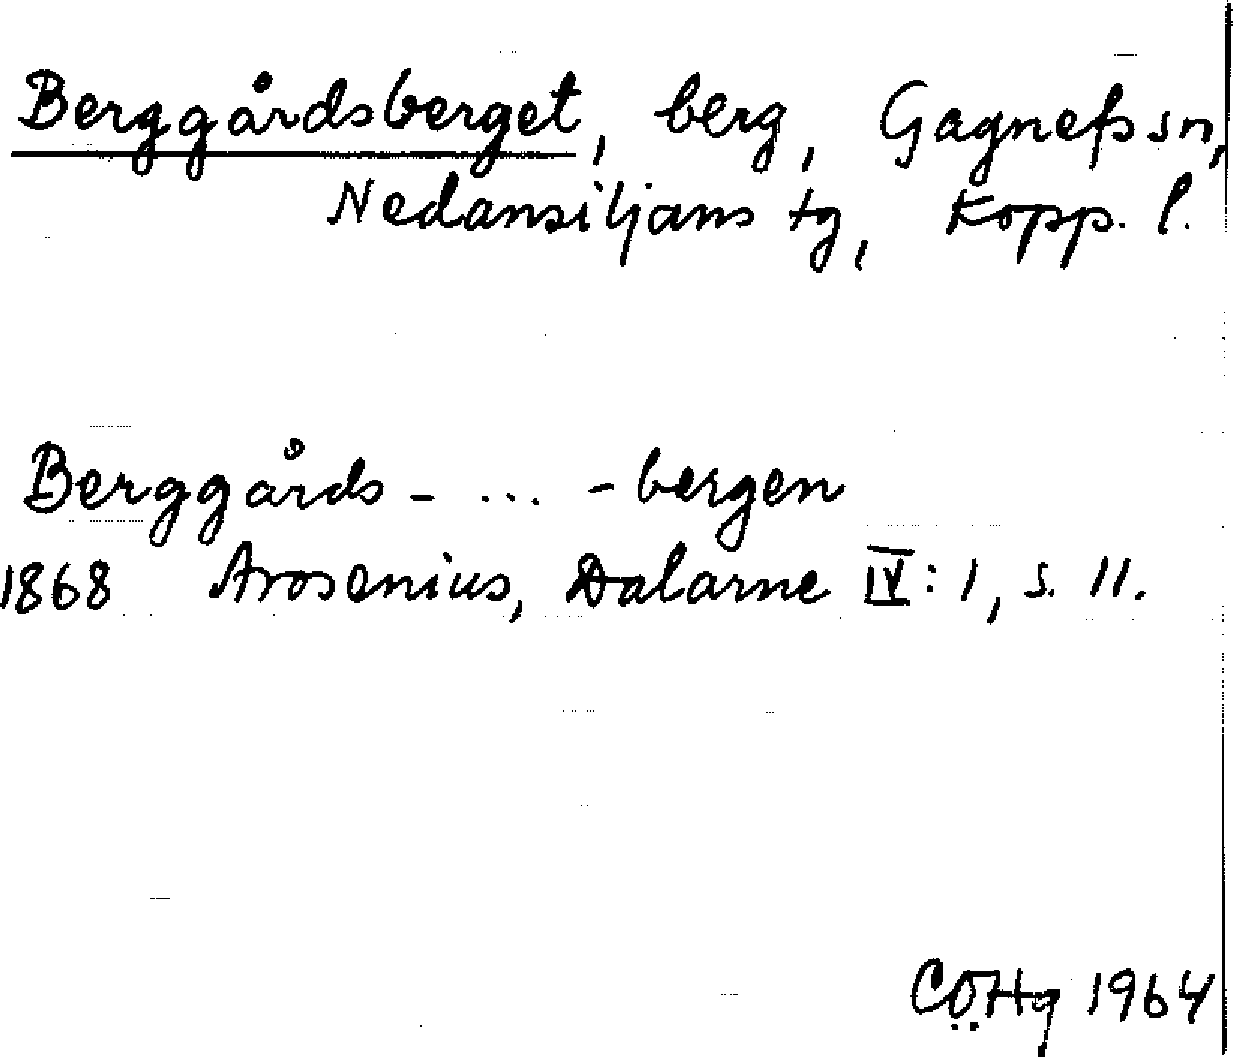 Berggårdsberget, berg, Gagnefs sn,
Nedansiljans tg, Kopp. l.
Berggårds- ... -bergen
1868 Arosenius, Dalarne IV: 1, s. 11.
CÖHg 1964